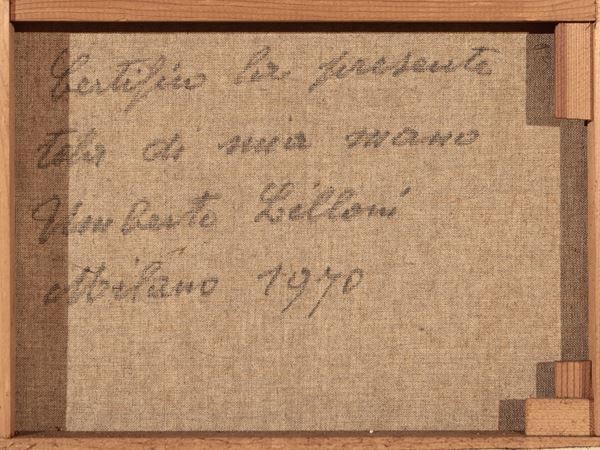 Certifico la presente
tela di mia mano
Umberto Lilloni
Milano 1970